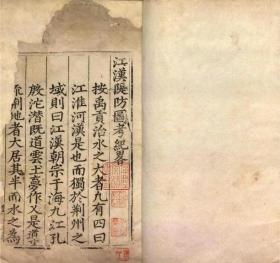 江漢隄防圖考紀畧
按禹貢治水之大者九有四曰
江淮河漢是也而獨於荊州之
域則曰江漢朝宗于海九江孔
殷沱潛既道雲土夢作乂是
荊地者大居其半而水之為